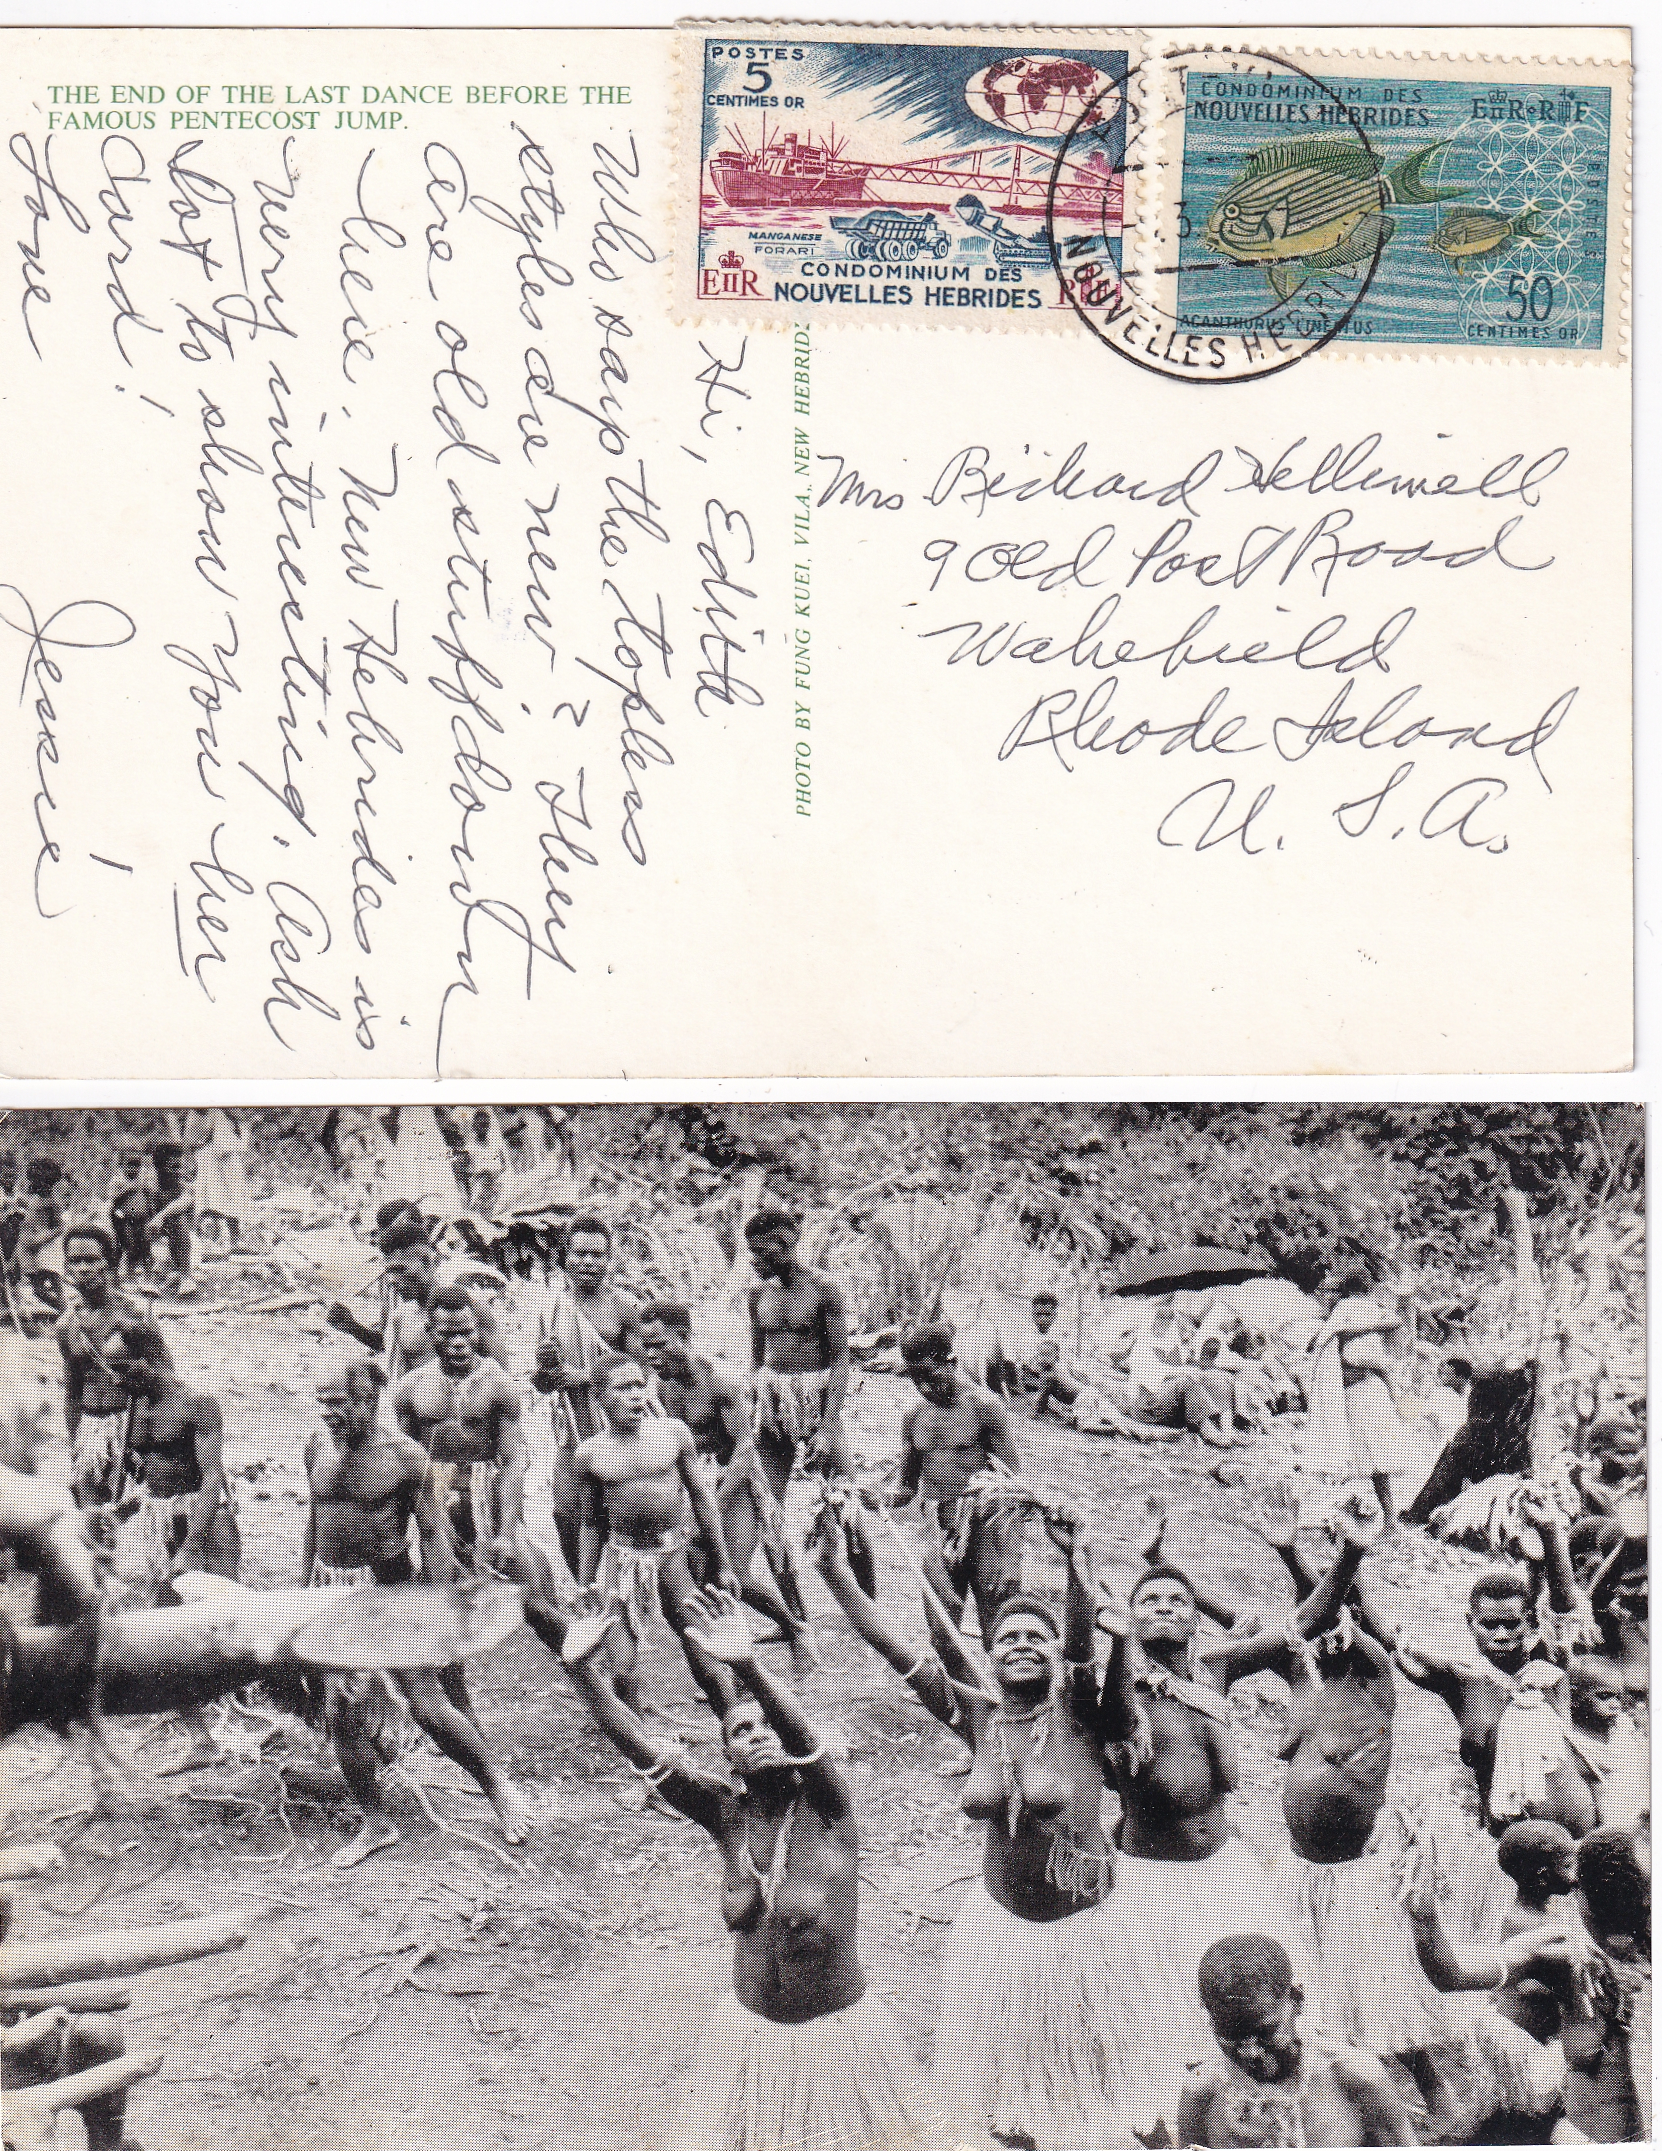 THE END OF THE LAST DANCE BEFORE THE
FAMOUS PENTECOST JUMP.
POSTES
5
CENTIMES OR
MANGANESE
FORARI
EIIR
CONDOMINIUM DES
NOUVELLES HEBRIDES
CONDOMINIUM DES
NOUVELLES HEBRIDES
EIIR·RF
POSTES
50
CENTIMES OR
ACANTHURUS LINEATUS
NOUVELLES HEBRIDES
PHOTO BY FUNG KUEI, VILA, NEW HEBRID
Hi, Edith
Who says the topless
styles are new? They
are old stuff down
here. New Hebrides is
very interesting. Ask
Dot to show you her
Card!
Love
Jessie!
Mrs Richard Helliwell
9 Old Post Road
Wakefield
Rhode Island
U. S. A.